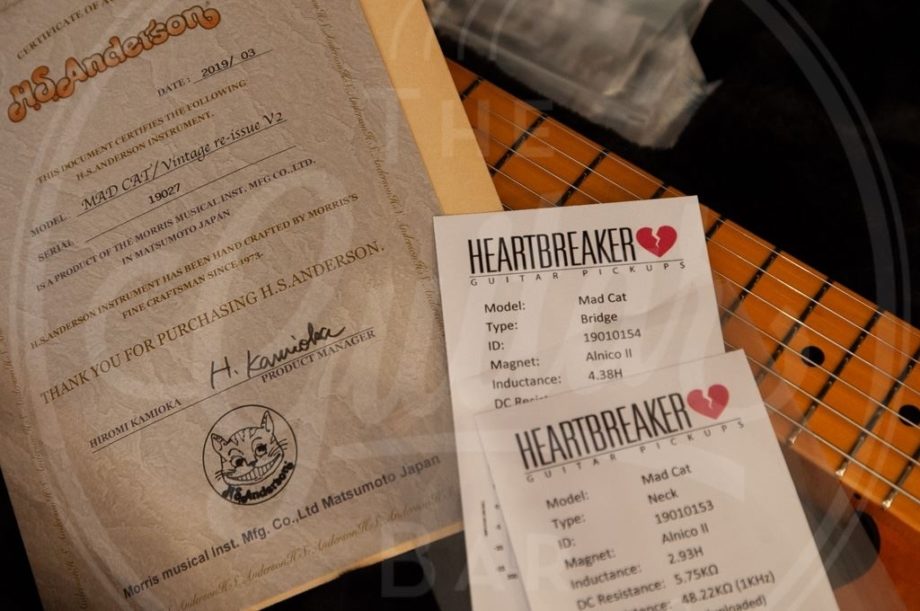 CERTIFICATE OF
H.S.Anderson
DATE: 2019/03
THIS DOCUMENT CERTIFIES THE FOLLOWING
H.S.ANDERSON INSTRUMENT.
MODEL MAD CAT/Vintage re-issue V2
SERIAL 19027
IS A PRODUCT OF THE MORRIS MUSICAL INST. MFG CO.,LTD.
IN MATSUMOTO JAPAN
H.S.ANDERSON INSTRUMENT HAS BEEN HAND CRAFTED BY MORRIS'S
FINE CRAFTSMAN SINCE 1973.
THANK YOU FOR PURCHASING H.S.ANDERSON.
H. Kamioka
HIROMI KAMIOKA PRODUCT MANAGER
H.S.Anderson
Morris musical Inst. Mfg. Co.,Ltd Matsumoto Japan
HEARTBREAKER
GUITAR PICKUPS
Model: Mad Cat
Type: Bridge
ID: 19010154
Magnet: Alnico II
Inductance: 4.38H
DC
HEARTBREAKER
GUITAR PICKUPS
Model: Mad Cat
Type: Neck
ID: 19010153
Magnet: Alnico II
Inductance: 2.93H
DC Resistance: 5.75KΩ
48.22KΩ (1KHz)
THE
Guitar
BAR